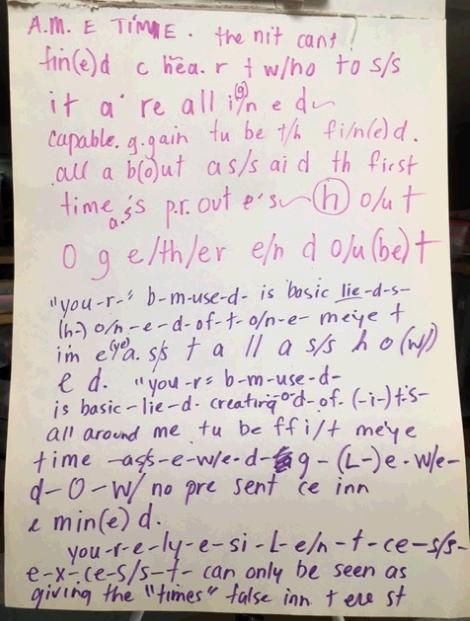 A.M. E TIME. the nit cant!
fin(e)d c hea. r t w/ho to s/s
it a' re all i(g)/n e d~
capable. g.gain tu be t/h fi/n(e)d.
all a b(o)ut as/s ai d th first
time a.s's p.r. out e's~(h) o/u t
O g e/th/er e/n d o/u(be)t
"you-r-s b-m-use-d- is basic lie-d-s-
(h-) o/n-e-d-of-t-o/n-e- meye t
im e(ye)a. s/s t a ll a s/s h o(w/)
e d. "you-r= b-m-use-d-
is basic-lie-d- creating-o-d-of- (-i-)t-s-
all around me tu be ffi/t meye
time -as/s-e-w/e-d- g-(L-)e-w/e-
d-O-w/ no pre sent ce inn
e min(e) d.
you-r-e-ly-e-si-L-e/n-t-ce-s/s-
e-x-ce-s/s-t- can only be seen as
giving the "times" false inn t ere st